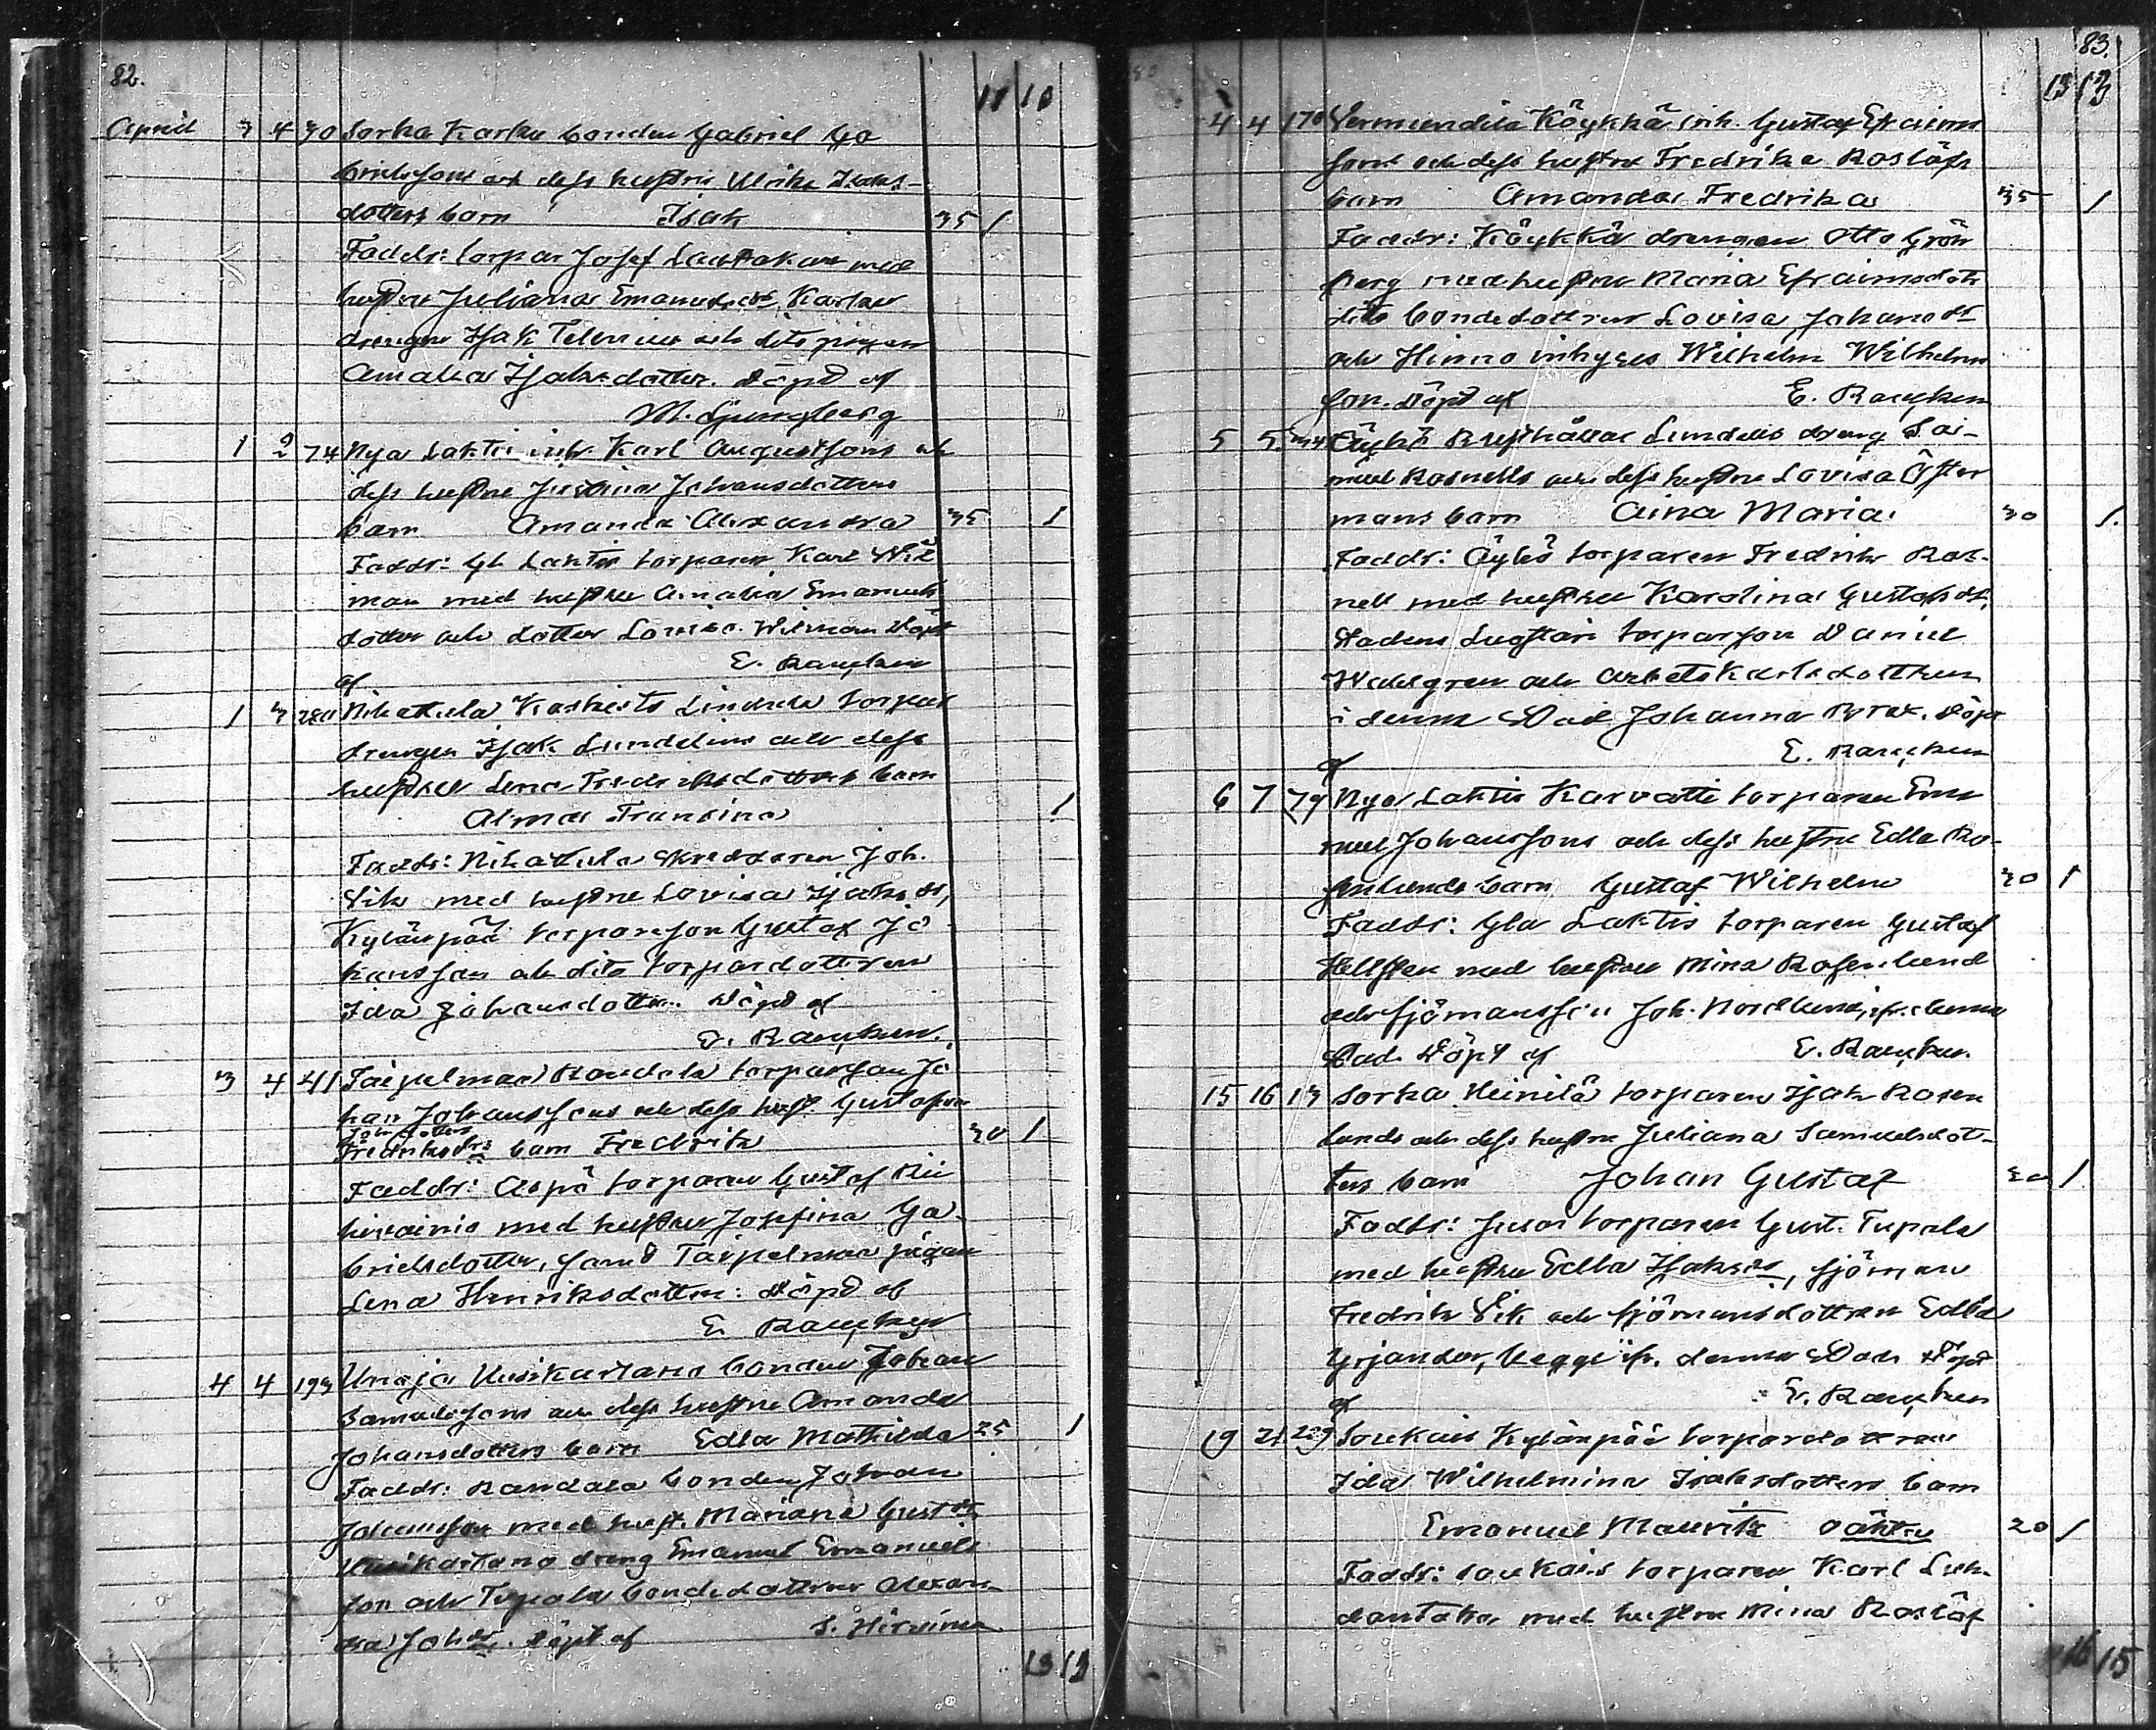 82.
11 10
April 3 4 30 Sorka Karku bonden Gabriel Ga
brielssons och dess hustru Ulrika Isaks-
dotters barn Isak 35 1
Faddr: torpar Josef med
hustru Juliana Emanuelsdr, Karku
drengen Isak Telenius och dito pigan
Amalia Isaksdotter. Döpt af
M. Ljungberg
1 2 74 Nya Laktis inh. Karl Augustssons och
dess hustru Justina Johansdotters
barn Amanda Alexandra 35 1
Faddr: Gl. Laktis torparen Karl Wik
man med hustru Amalia Emanuels
dotter och dotter Lovisa Wikman Döpt
af E. Rancken
1 3 280 Nihattula Kaskisto Lindedu torpar
drengen Isak Lundelius och dess
hustru Lena Fredriksdotters barn
Alma Fransina 1
Faddr: Nihattula skreddaren Joh.
Vik med hustru Lovisa Isaksdr,
Kylänpää torpareson Gustaf Jo
hansson och dito torpardottren
Ida Johansdotter. Döpt af
E. Rancken.
3 4 41 Taipelmaa Randala torparson Jo
han Johanssons och dess hust. Gustafva
Joh.dotters
Fredriksdrs barn Fredrik 30 1
Faddr: Aspö torparen Gustaf
med hustru Josefina Ga
brielsdotter, samt Taipelmaa pigan
Lena Henriksdotter: Döpt af
E. Rancken
4 4 193 Unaja Uusikartano bonden Johan
Samuelssons och dess hustru Amanda
Johansdotters barn Edla Mathilda 25 1
Faddr: Randala bonden Johan
Johansson med hust. Mariana Gustdr
Uusikartano dreng Emanuel Emanuels
son och Tupala bondedottren Alexan
dra Johdr. Döpt af S. Hirvinen
13 13
83.
13 13
4 4 170 Vermuntila Köykkä inh. Gustaf Efraims
sons och dess hustru Fredrika Roslöfs
barn Amanda Fredrika 35 1
Faddr: Köykkä drengen Otto Grön
berg med hustru Maria Efraimsdotr
dito bondedottren Lovisa Johansdr
och Hinno inhyses Wilhelm Wilhelms
son. Döpt af E. Rancken
5 5 Äyhö Rusthållar Lundells dreng Sa-
muel Rosnells och dess hustru Lovisa Öster
mans barn Aina Maria 30 1.
Faddr: Äyhö torparen Fredrik Ros-
nell med hustru Karolina Gustafsdr,
Stadens torparson Daniel
Wahlgren och Arbetskarlsdottren
i denna Stad Johanna Brax. Döpt
af E. Rancken
6 7 79 Nya Laktis Karvatti torparen Ema
nuel Johanssons och dess hustru Edla Ro-
senlunds barn Gustaf Wilhelm 30 1
Faddr: Gla Laktis torparen Gustaf
Hellsten med hustru Mina Rosenlund
och sjömansson Joh. Nordlund, ifr. denna
Stad. Döpt af E. Rancken.
15 16 13 Sorka Heinilä torparen Isak Rosen
lunds och dess hustru Juliana Samuelsdot-
ters barn Johan Gustaf 30 1
Faddr: Susi torparen Gust. Tupala
med hustru Edla Isaksdr, sjöman
Fredrik Vik och sjömansdottren Edla
Grjander, begge ifr. denna Stad. Döpt
af E. Rancken
19 21 229 Soukais Kylänpää torpardottren
Ida Wilhelmina Isaksdotters barn
Emanuel Mauritz oäkta 20 1
Faddr: Soukais torparen Karl
med hustru Mina Roslöf
16 15